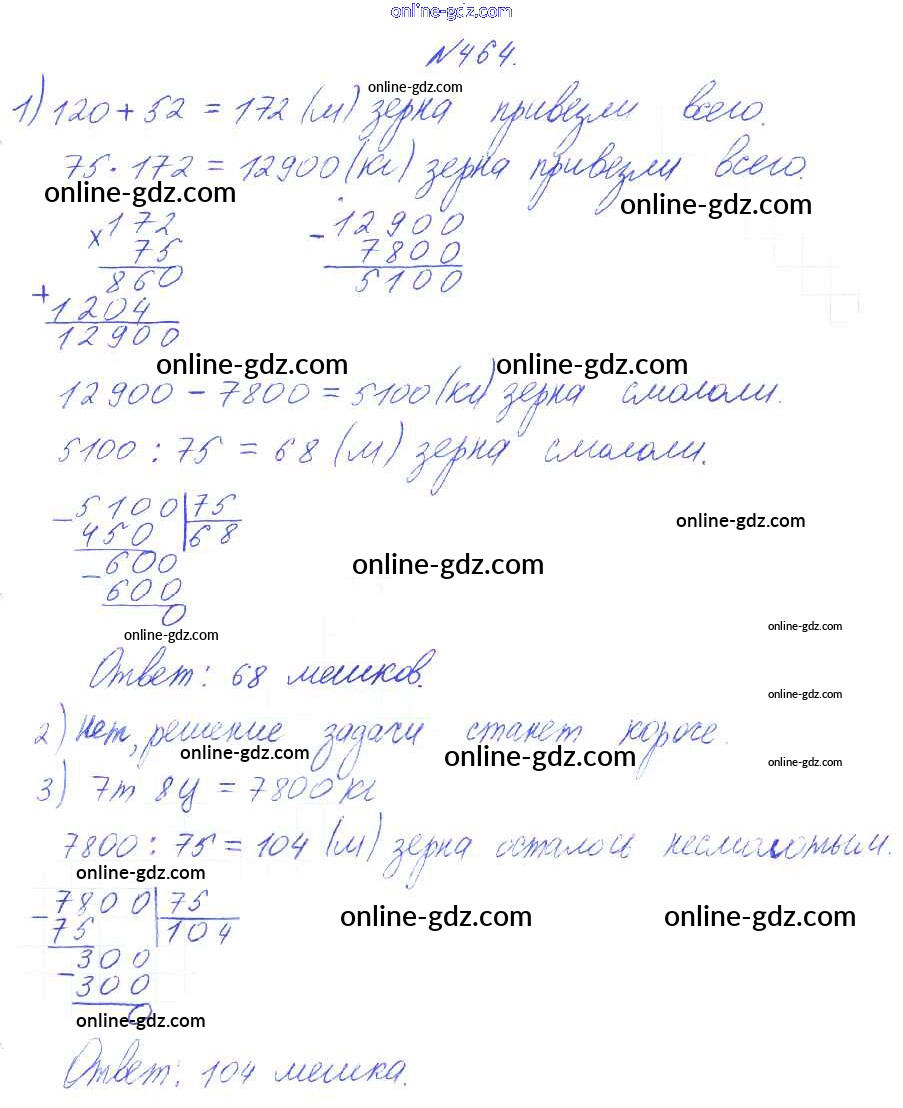 online-gdz.com
№464.
online-gdz.com
1) 120 + 52 = 172 (м) зерна привезли всего.
75 · 172 = 12900 (кг) зерна привезли всего.
online-gdz.com online-gdz.com
× 172 - 12900
75 7800
860 5100
+ 1204
12900
online-gdz.com online-gdz.com
12900 - 7800 = 5100 (кг) зерна смололи.
5100 : 75 = 68 (м) зерна смололи.
- 5100 | 75
450 68 online-gdz.com
- 600 online-gdz.com
600
0 online-gdz.com
online-gdz.com
Ответ: 68 мешков.
online-gdz.com
2) Нет, решение задачи станет короче.
online-gdz.com online-gdz.com online-gdz.com
3) 7т 8ц = 7800 кг
7800 : 75 = 104 (м) зерна осталось несмолотым.
online-gdz.com
- 7800 | 75
75 104 online-gdz.com online-gdz.com
- 300
300
0
online-gdz.com
Ответ: 104 мешка.